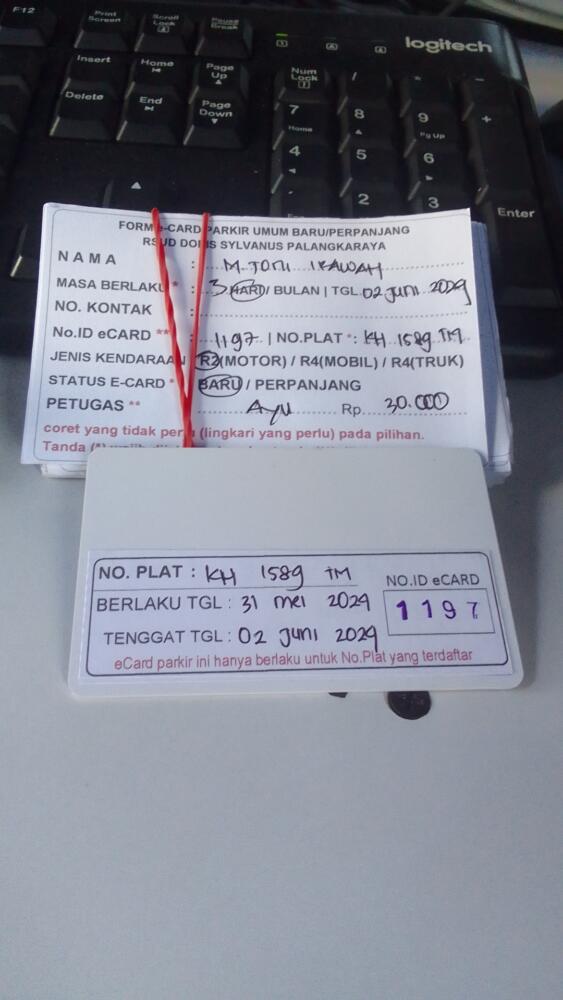 F12
Print Screen
Scroll Lock
Pause Break
logitech
Insert
Home
Page Up
Num Lock
/
*
-
Delete
End
Page Down
7 Home
8
9 Pg Up
+
4
5
6
2
3
Enter
FORM e-CARD PARKIR UMUM BARU/PERPANJANG
RSUD DORIS SYLVANUS PALANGKARAYA
NAMA : M. TONI IRAWAH
MASA BERLAKU * : 3 HARI/ BULAN | TGL 02 Juni 2029
NO. KONTAK :
No.ID eCARD ** : 1197 | NO.PLAT *: KH 1589 TM
JENIS KENDARAAN R2(MOTOR) / R4(MOBIL) / R4(TRUK)
STATUS E-CARD * BARU / PERPANJANG
PETUGAS ** Ayu Rp. 30.000
coret yang tidak perlu (lingkari yang perlu) pada pilihan.
Tanda (*)
NO. PLAT : KH 1589 TM
NO.ID eCARD
BERLAKU TGL : 31 mei 2029
1197
TENGGAT TGL : 02 Juni 2029
eCard parkir ini hanya berlaku untuk No.Plat yang terdaftar